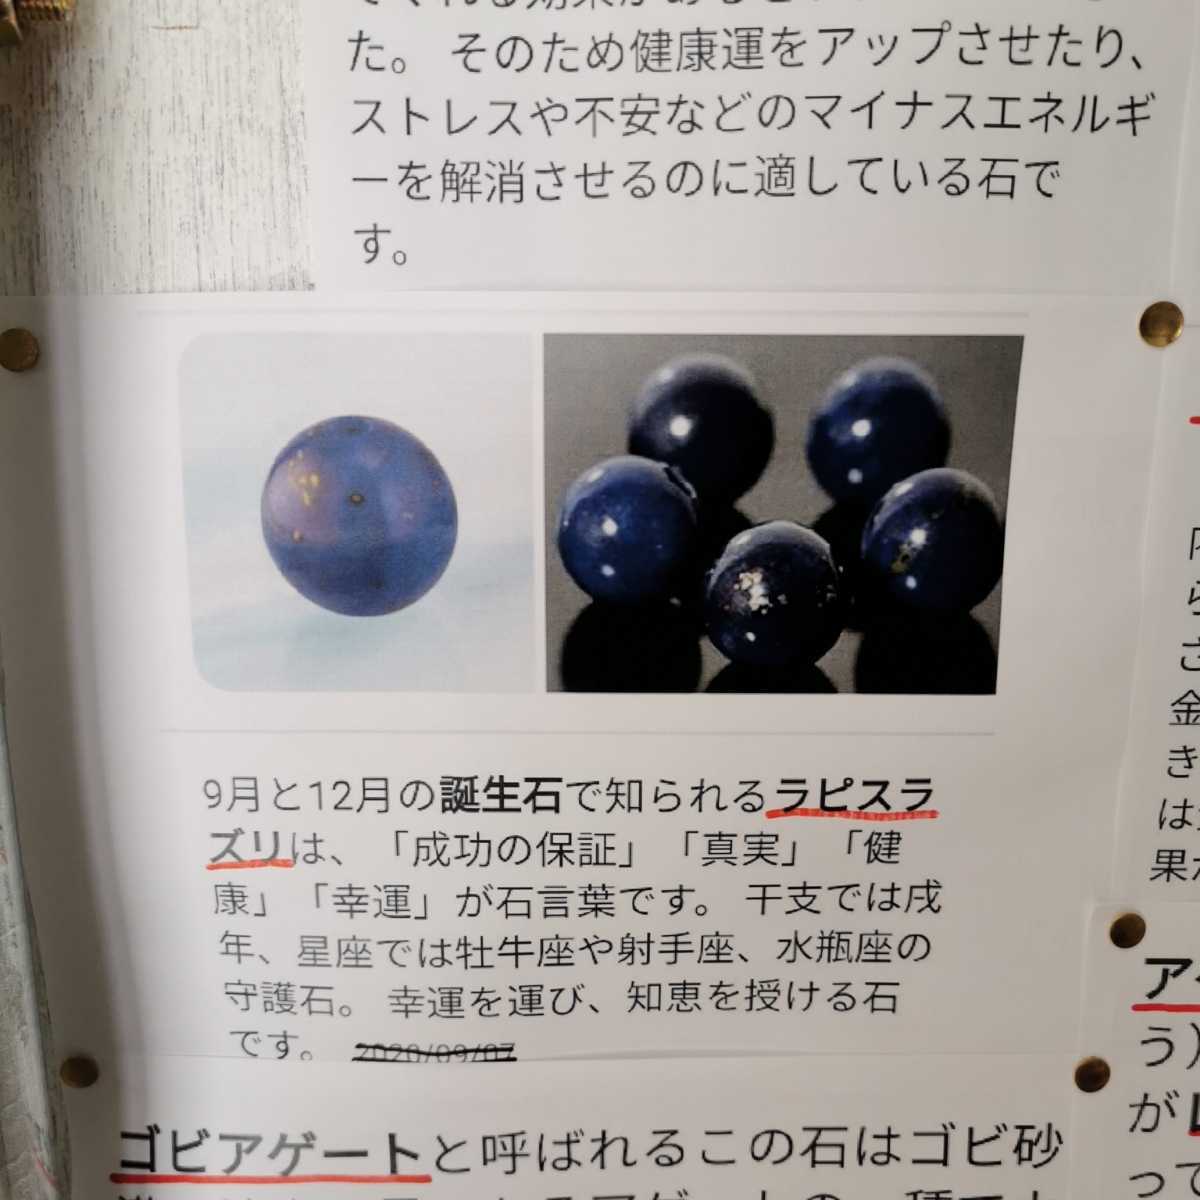 た。 そのため健康運をアップさせたり、
ストレスや不安などのマイナスエネルギ
ーを解消させるのに適している石で
す。
9月と12月の誕生石で知られるラピスラ
ズリは、「成功の保証」「真実」「健
康」「幸運」が石言葉です。 干支では戌
年、星座では牡牛座や射手座、水瓶座の
守護石。 幸運を運び、知恵を授ける石
です。 2020/09/07
ゴビアゲートと呼ばれるこの石はゴビ砂
ら
さ
金
き
は
果
ア
う）
が
って